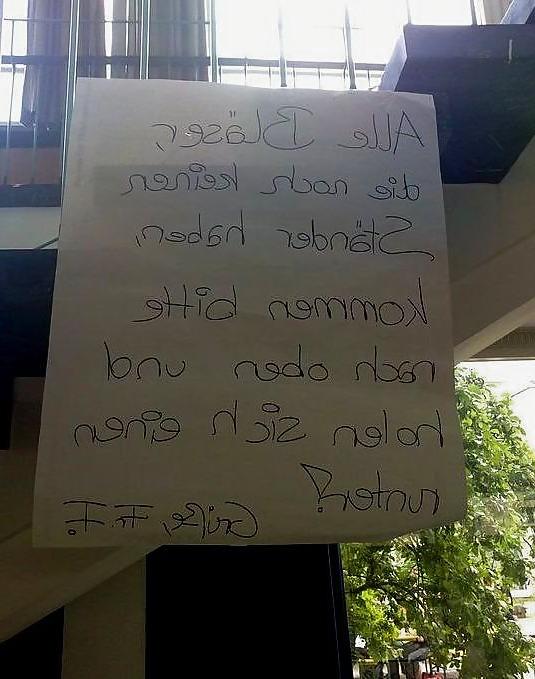 Alle Bläser,
die noch keinen
Ständer haben,
kommen bitte
nach oben und
holen sich einen
runter!
Grüße, Fr. F.